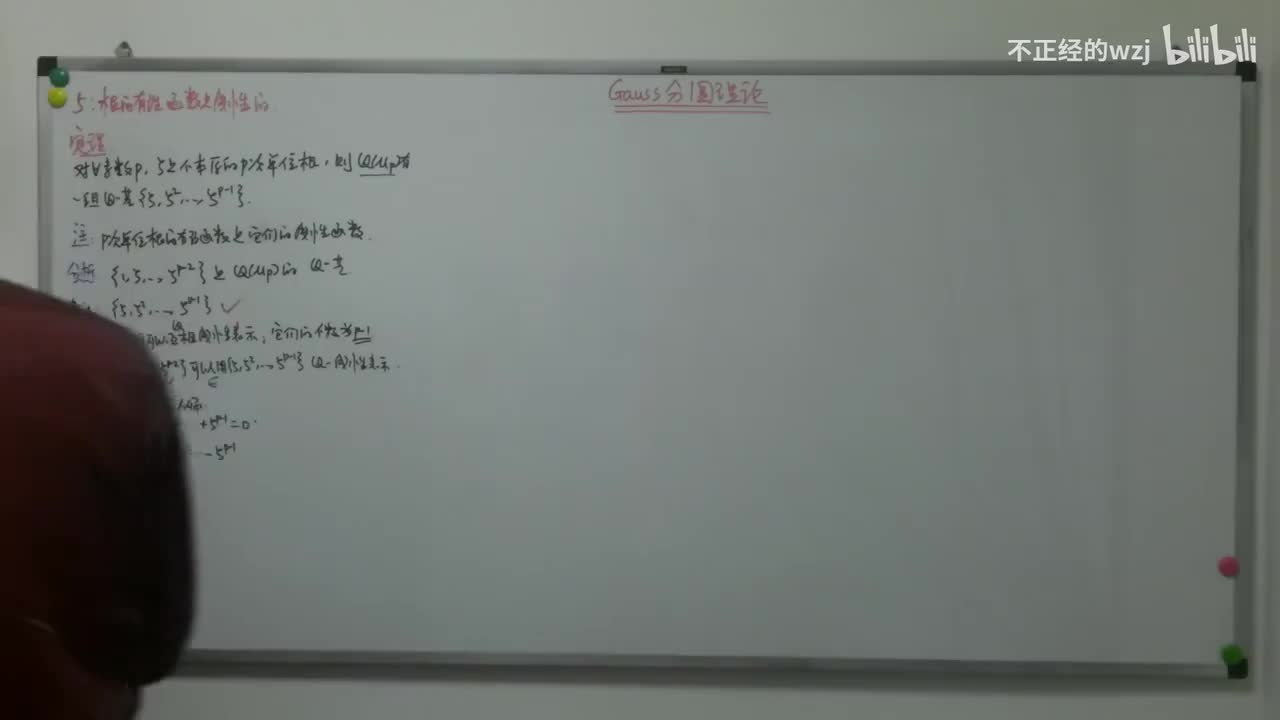 不正经的wzj bilibili
Gauss分圆理论
5:根的有理函数是线性的
定理
对∀素数p, ζ是个本原的p次单位根, 则Q(μp)有
一组Q-基{ζ, ζ², …, ζ^{p-1}}.
注: p次单位根的有理函数是它们的线性函数.
分析 {1, ζ, …, ζ^{p-2}}是Q(μp)的Q-基
{ζ, ζ², …, ζ^{p-1}} ✓
可以互相线性表示, 它们的个数为p-1
ζ^{p-2}}可以用{ζ, ζ², …, ζ^{p-1}} Q-线性表示.
+ζ^{p-1}=0.
… ζ^{p-1}